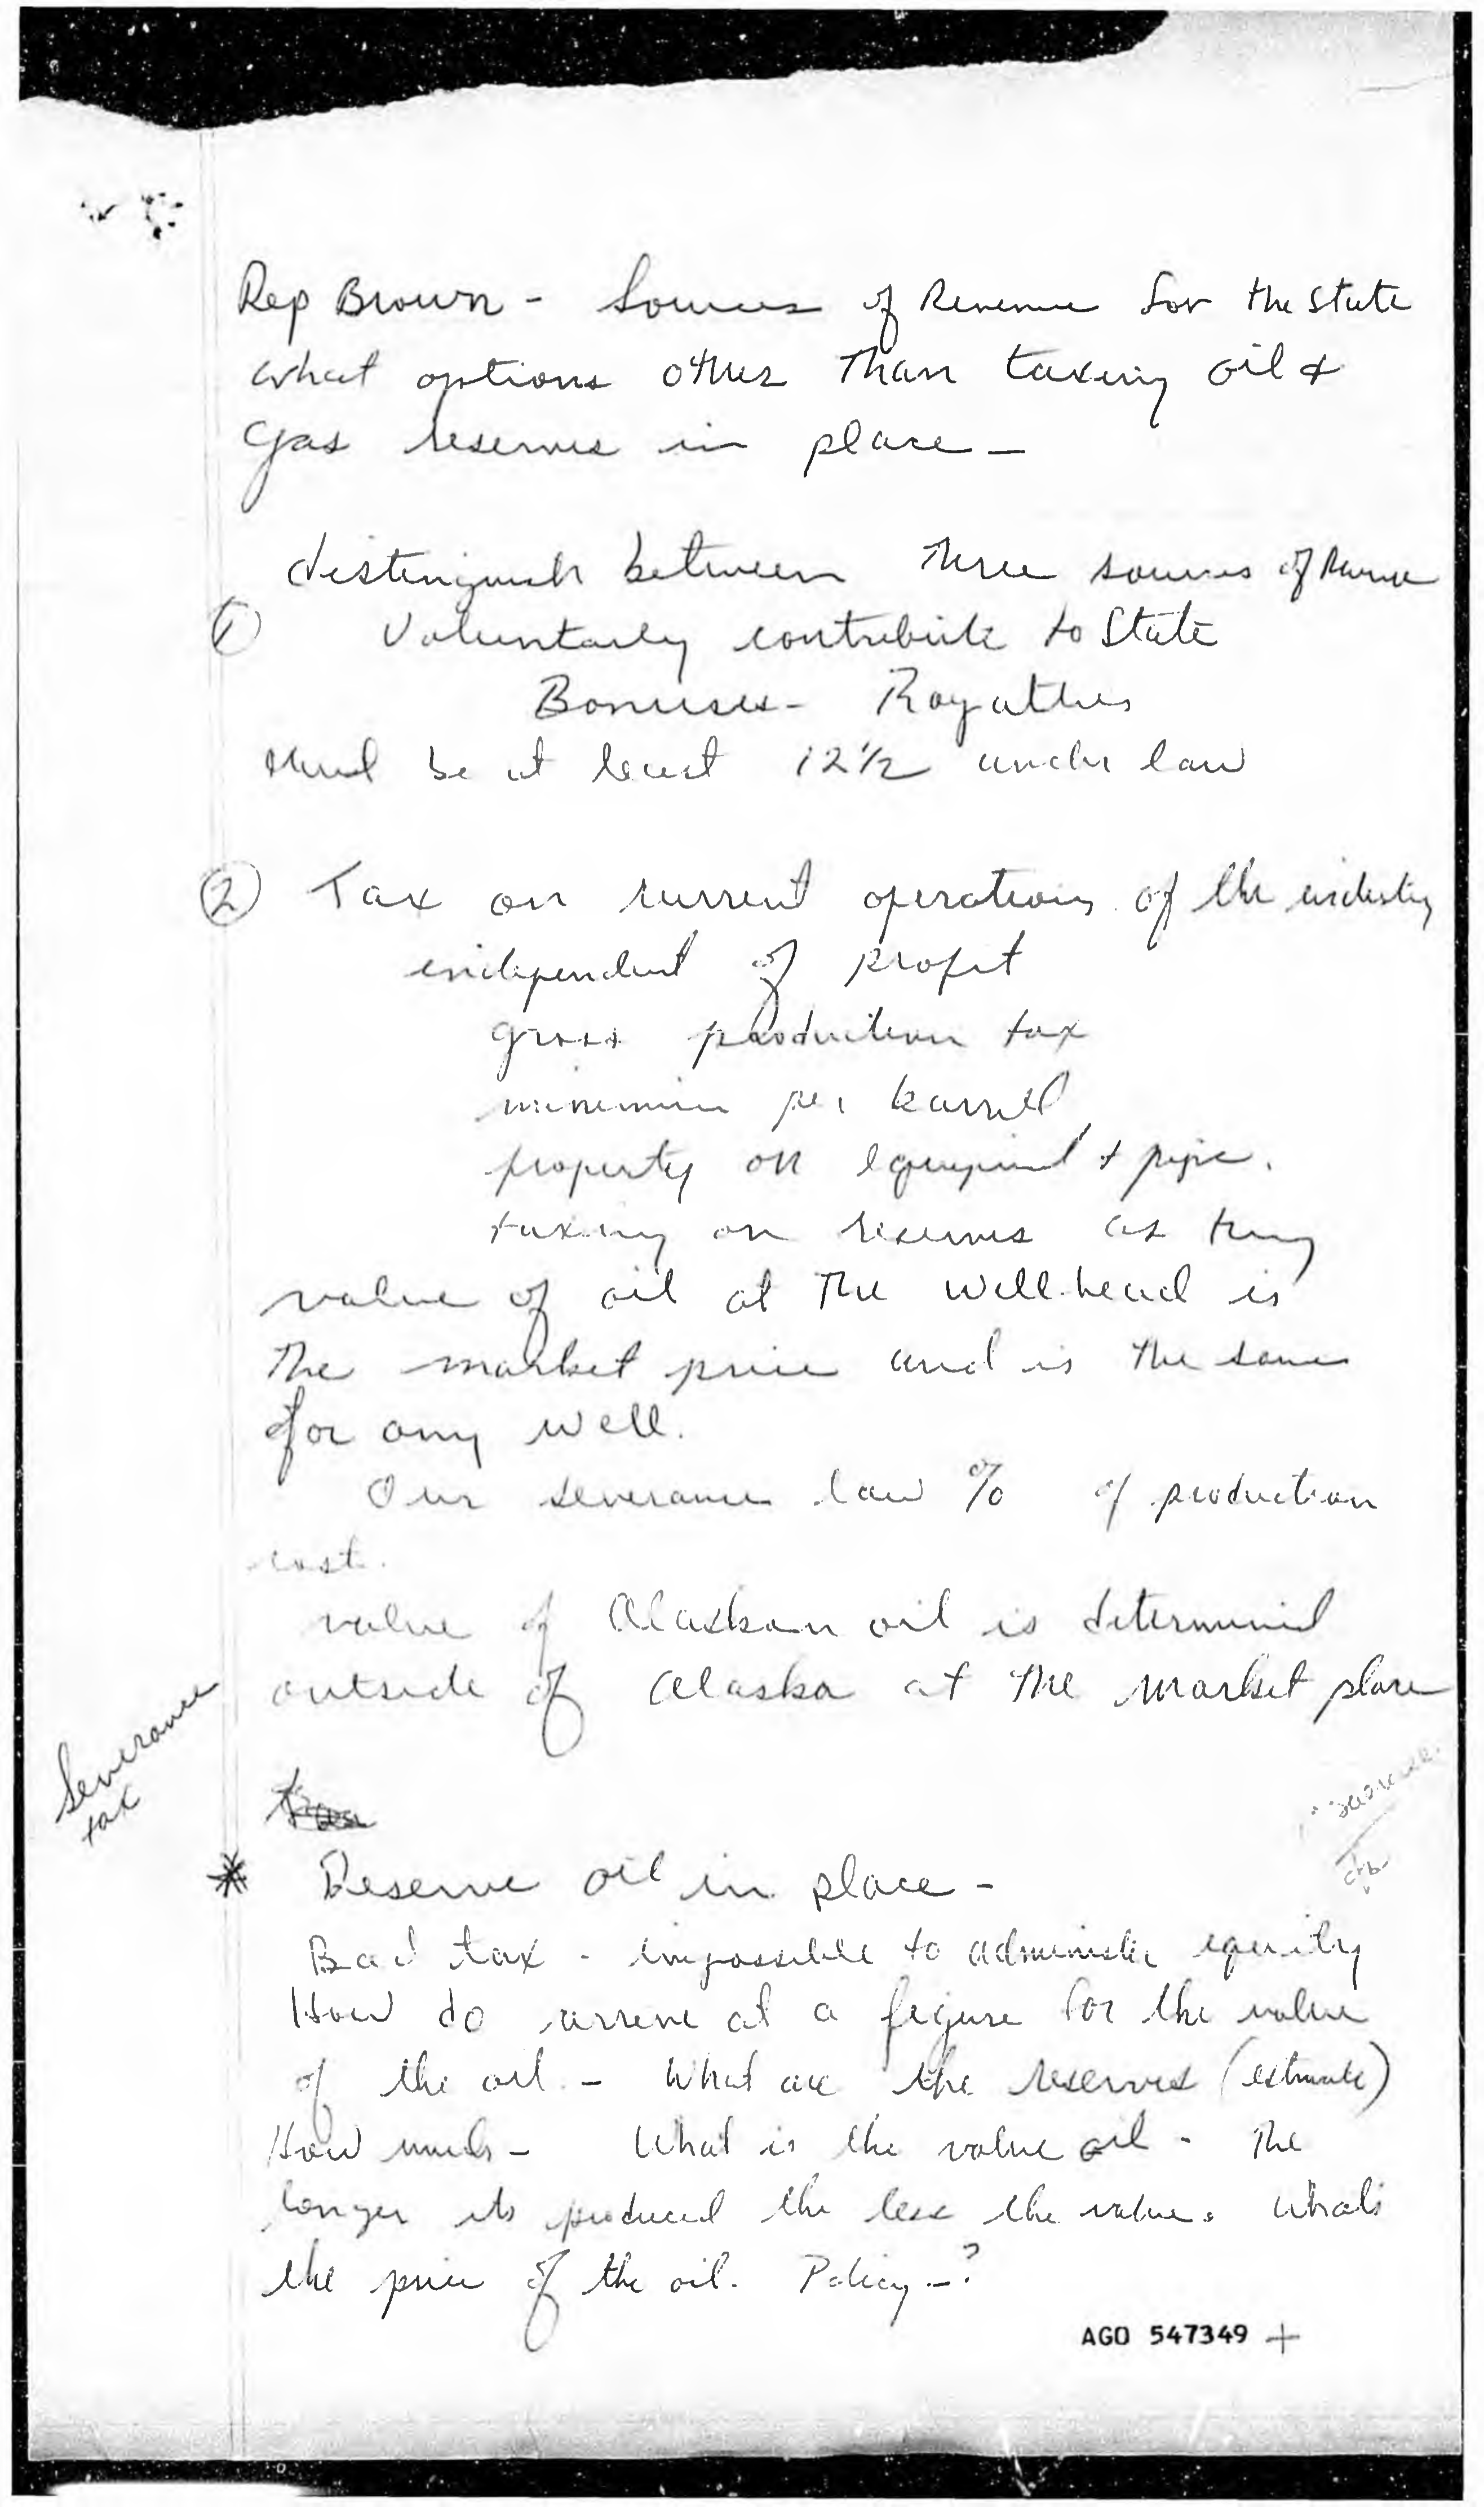 Rep Brown - Sources of Revenue for the State
what options other than taxing oil &
gas reserves in place -
distinguish between three sources of Revenue
① Voluntarily contribute to State
Bonuses - Royalties
must be at least 12 1/2 under law
② Tax on current operations of the industry
independent of profit
gross production tax
minimum per barrel
property on equipment & pipe.
taxing on reserves as they
value of oil at the wellhead is
the market price and is the same
for any well.
Our severance law % of production
cost.
value of Alaskan oil is determined
outside of Alaska at the market place
Severance
tax
* Reserve oil in place -
Bad tax - impossible to administer equity
How do arrive at a figure for the value
of the oil - What are the reserves (estimate)
How much - What is the value oil - The
longer its produced the less the value. Whats
the price of the oil. Policy - ?
AGO 547349 +